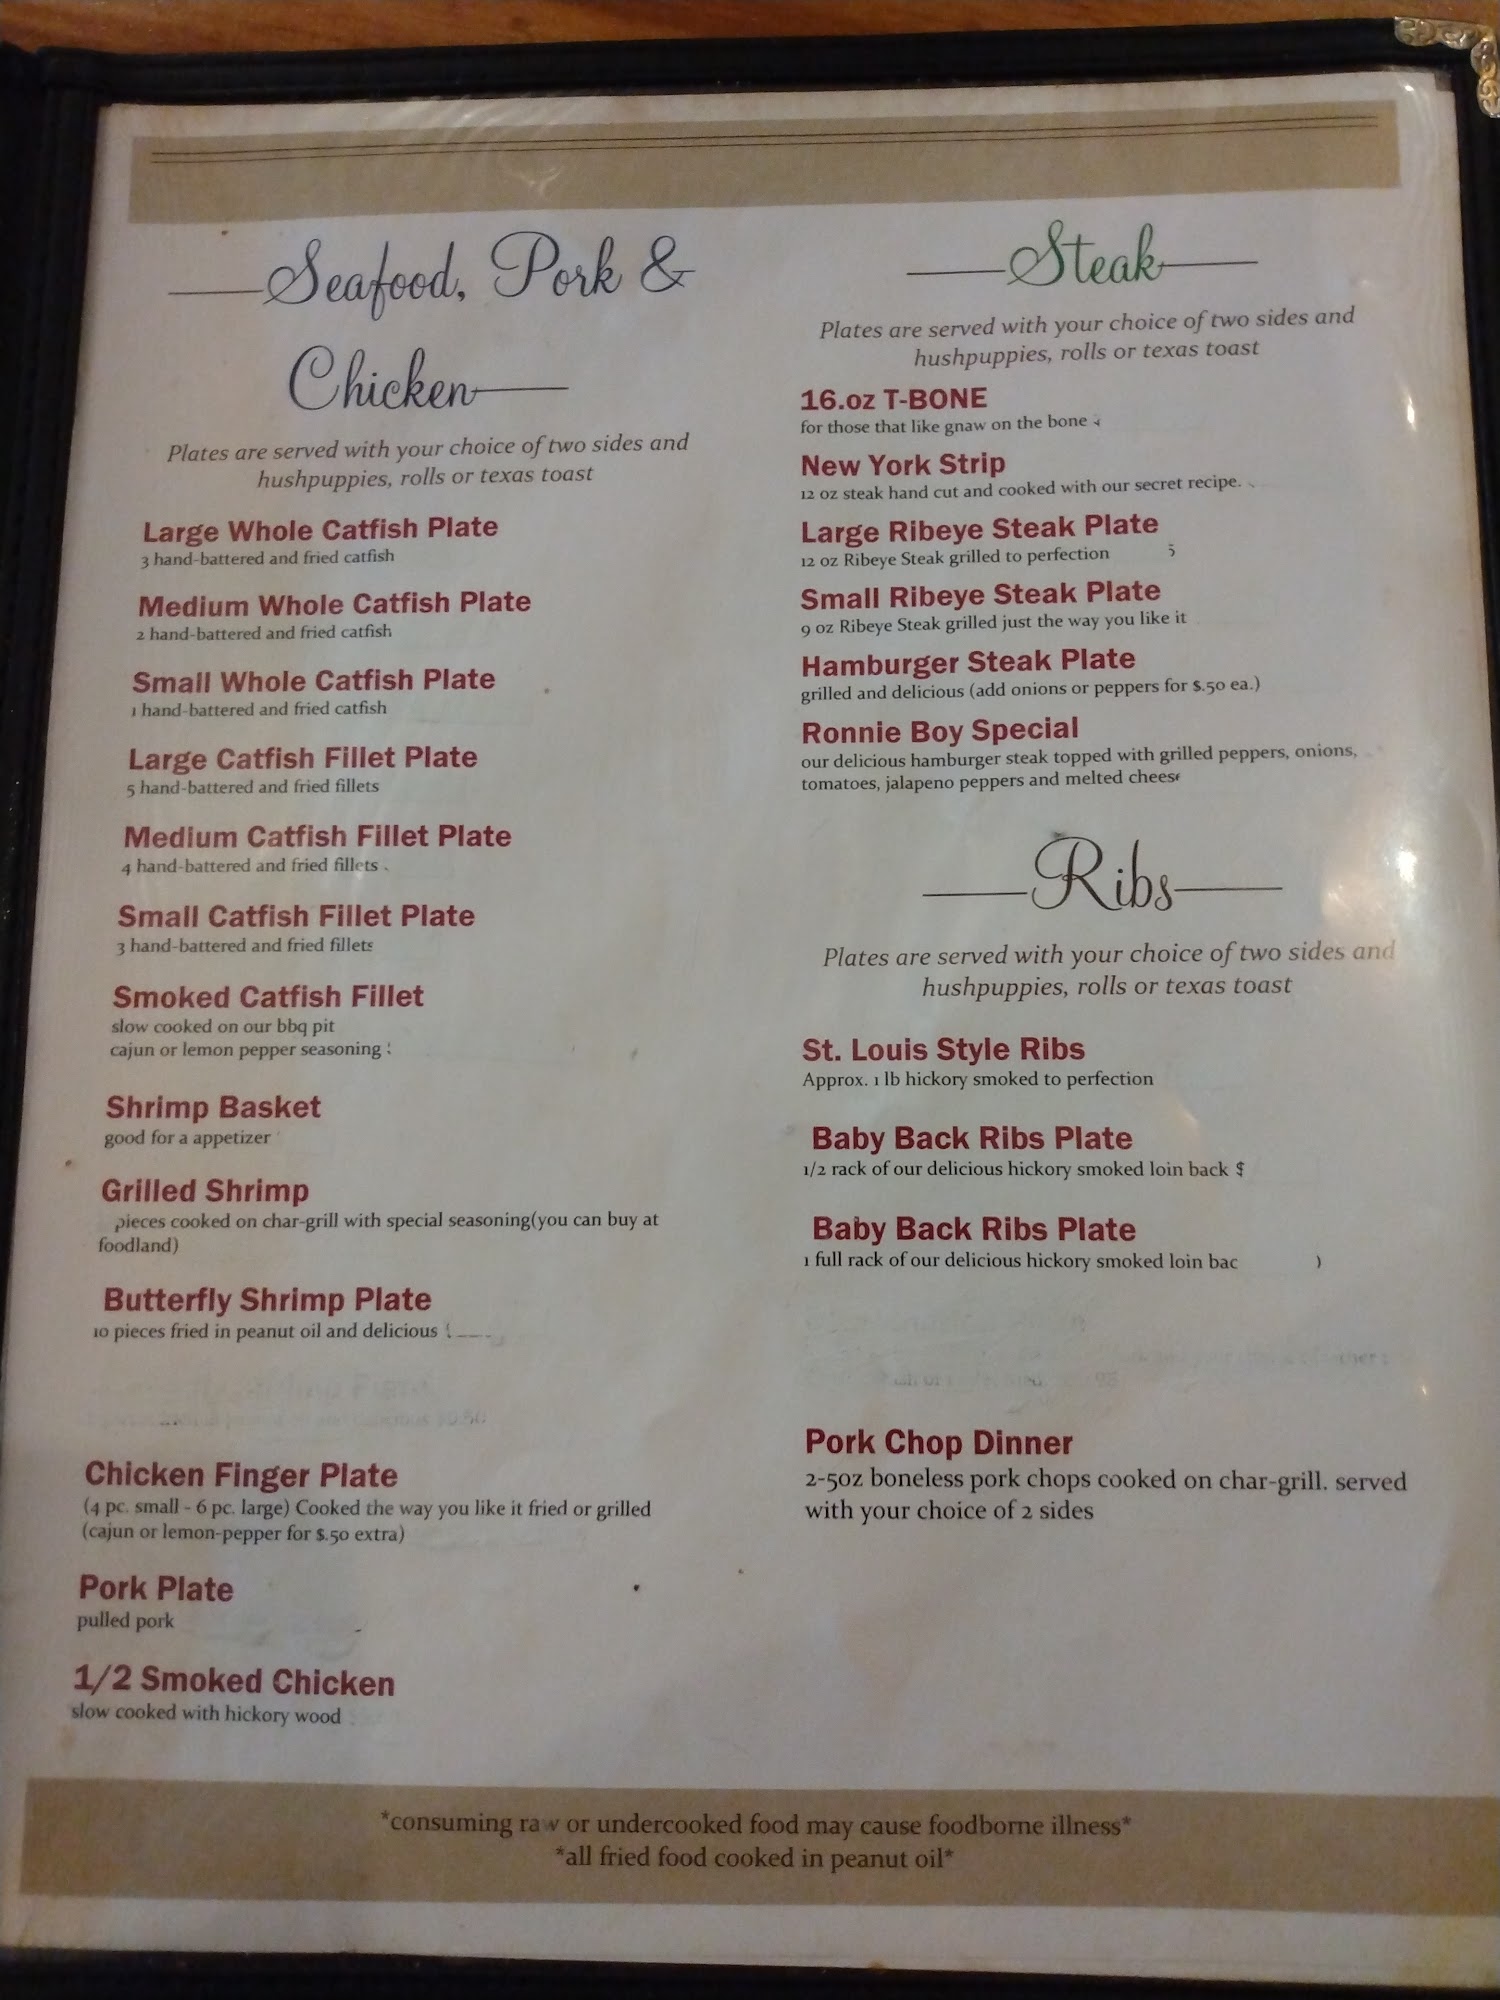 Seafood, Pork &
Chicken
Plates are served with your choice of two sides and
hushpuppies, rolls or texas toast
Large Whole Catfish Plate
3 hand-battered and fried catfish
Medium Whole Catfish Plate
2 hand-battered and fried catfish
Small Whole Catfish Plate
1 hand-battered and fried catfish
Large Catfish Fillet Plate
5 hand-battered and fried fillets
Medium Catfish Fillet Plate
4 hand-battered and fried fillets
Small Catfish Fillet Plate
3 hand-battered and fried fillets
Smoked Catfish Fillet
slow cooked on our bbq pit
cajun or lemon pepper seasoning
Shrimp Basket
good for a appetizer
Grilled Shrimp
pieces cooked on char-grill with special seasoning(you can buy at
foodland)
Butterfly Shrimp Plate
10 pieces fried in peanut oil and delicious
Chicken Finger Plate
(4 pc. small - 6 pc. large) Cooked the way you like it fried or grilled
(cajun or lemon-pepper for $.50 extra)
Pork Plate
pulled pork
1/2 Smoked Chicken
slow cooked with hickory wood
Steak
Plates are served with your choice of two sides and
hushpuppies, rolls or texas toast
16.oz T-BONE
for those that like gnaw on the bone
New York Strip
12 oz steak hand cut and cooked with our secret recipe.
Large Ribeye Steak Plate
12 oz Ribeye Steak grilled to perfection 5
Small Ribeye Steak Plate
9 oz Ribeye Steak grilled just the way you like it
Hamburger Steak Plate
grilled and delicious (add onions or peppers for $.50 ea.)
Ronnie Boy Special
our delicious hamburger steak topped with grilled peppers, onions,
tomatoes, jalapeno peppers and melted cheese
Ribs
Plates are served with your choice of two sides and
hushpuppies, rolls or texas toast
St. Louis Style Ribs
Approx. 1 lb hickory smoked to perfection
Baby Back Ribs Plate
1/2 rack of our delicious hickory smoked loin back $
Baby Back Ribs Plate
1 full rack of our delicious hickory smoked loin bac )
Pork Chop Dinner
2-5oz boneless pork chops cooked on char-grill. served
with your choice of 2 sides
*consuming raw or undercooked food may cause foodborne illness*
*all fried food cooked in peanut oil*